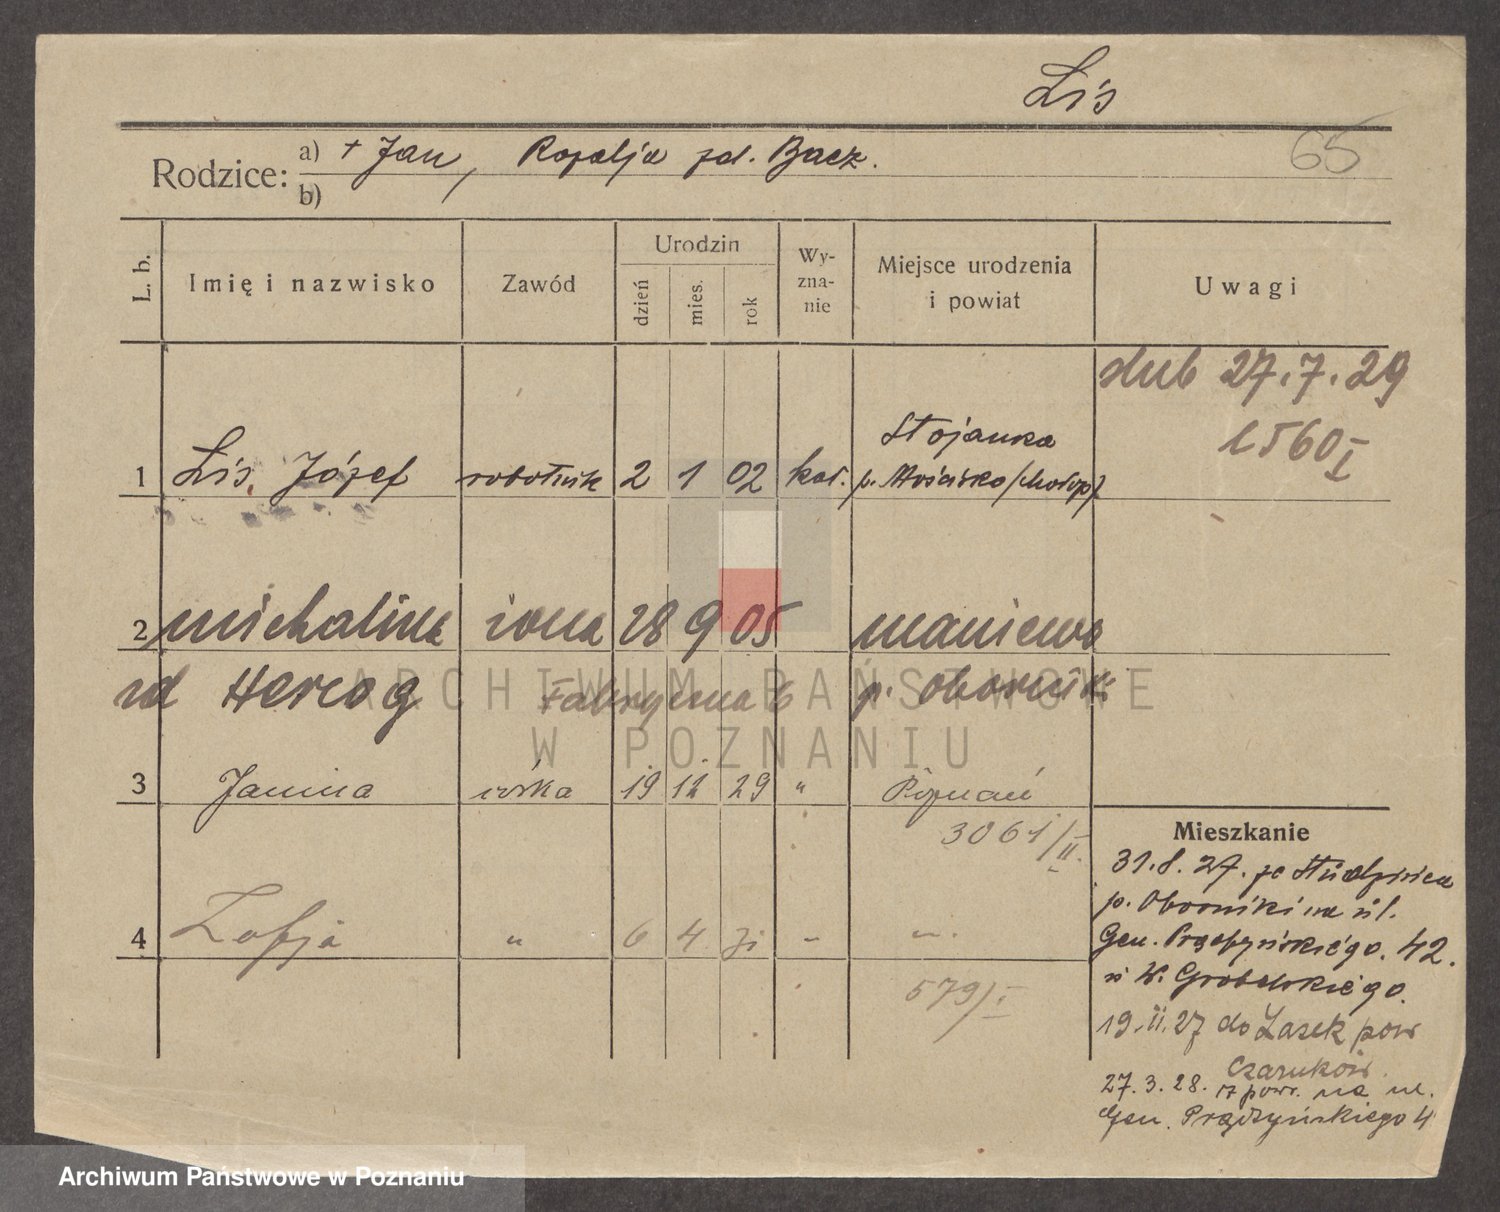 Lis
65
Rodzice: a) + Jan, Rozalja zd. Bacz.
b)
L. b.
Imię i nazwisko
Zawód
Urodzin
dzień
mies.
rok
Wy-
zna-
nie
Miejsce urodzenia
i powiat
Uwagi
ślub 27.7.29
1560 I
1 Lis, Józef robotnik 2 1 02 kat. Stojanka
p. Mościsko
2 Michalina żona 28 9 05 Maniewo
zd Herzog Fabryczna 6 p. Oborniki
3 Janina córka 19 12 29 " Poznań
3061/II.
4 Zofja " 6 4 31 - -"-
579/I
Mieszkanie
31.8.27. ze Studzieńca
p. Oborniki na ul.
Gen. Prądzyńskiego. 42.
u W. Grobelskiego.
19.II.27 do Lasek pow
Czarnków.
27.3.28. z pow. na ul.
Gen. Prądzyńskiego 4
ARCHIWUM PAŃSTWOWE
W POZNANIU
Archiwum Państwowe w Poznaniu